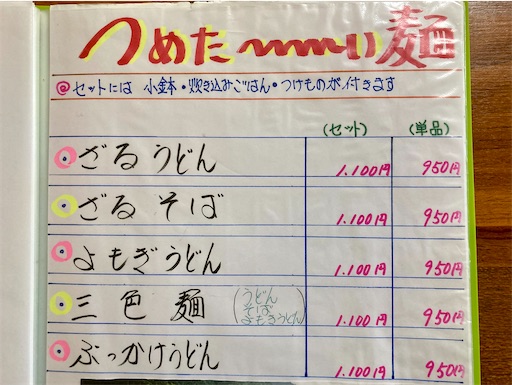 つめた〜〜い麺
@セットには 小鉢・炊き込みごはん・つけものが付きます
(セット) (単品)
ざるうどん 1.100円 950円
ざるそば 1.100円 950円
よもぎうどん 1.100円 950円
三色麺 (うどん そば よもぎうどん) 1.100円 950円
ぶっかけうどん 1.100円 950円